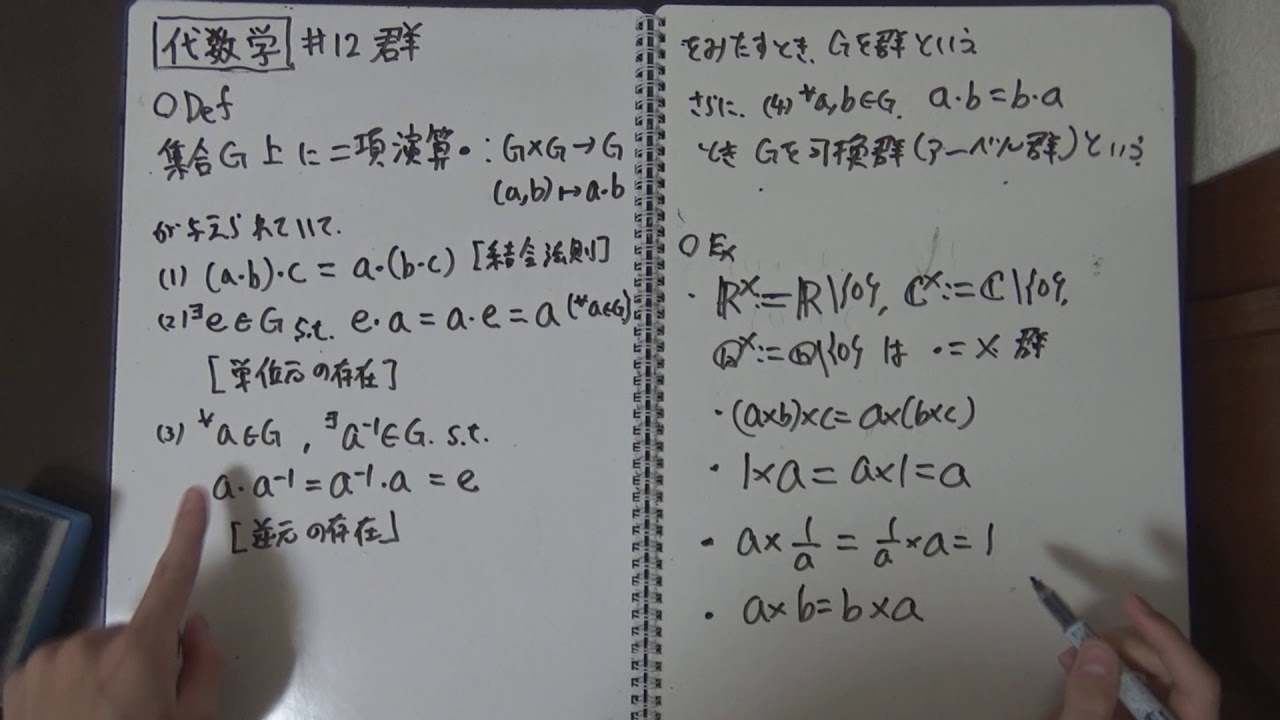 代数学 #12 群
○Def
集合G上に二項演算・:G×G→G
(a,b)↦a・b
が与えられていて.
(1) (a・b)・c = a・(b・c) [結合法則]
(2) ∃e∈G s.t. e・a = a・e = a (∀a∈G)
[単位元の存在]
(3) ∀a∈G , ∃a⁻¹∈G. s.t.
a・a⁻¹ = a⁻¹・a = e
[逆元の存在]
をみたすとき、Gを群という
さらに. (4) ∀a,b∈G. a・b = b・a
とき Gを可換群(アーベル群)という
○Ex
・ℝ^×:=ℝ\{0}, ℂ^×:=ℂ\{0},
ℚ^×:=ℚ\{0} は ・=× 群
・(a×b)×c=a×(b×c)
・1×a = a×1 = a
・a×1/a = 1/a×a = 1
・a×b = b×a